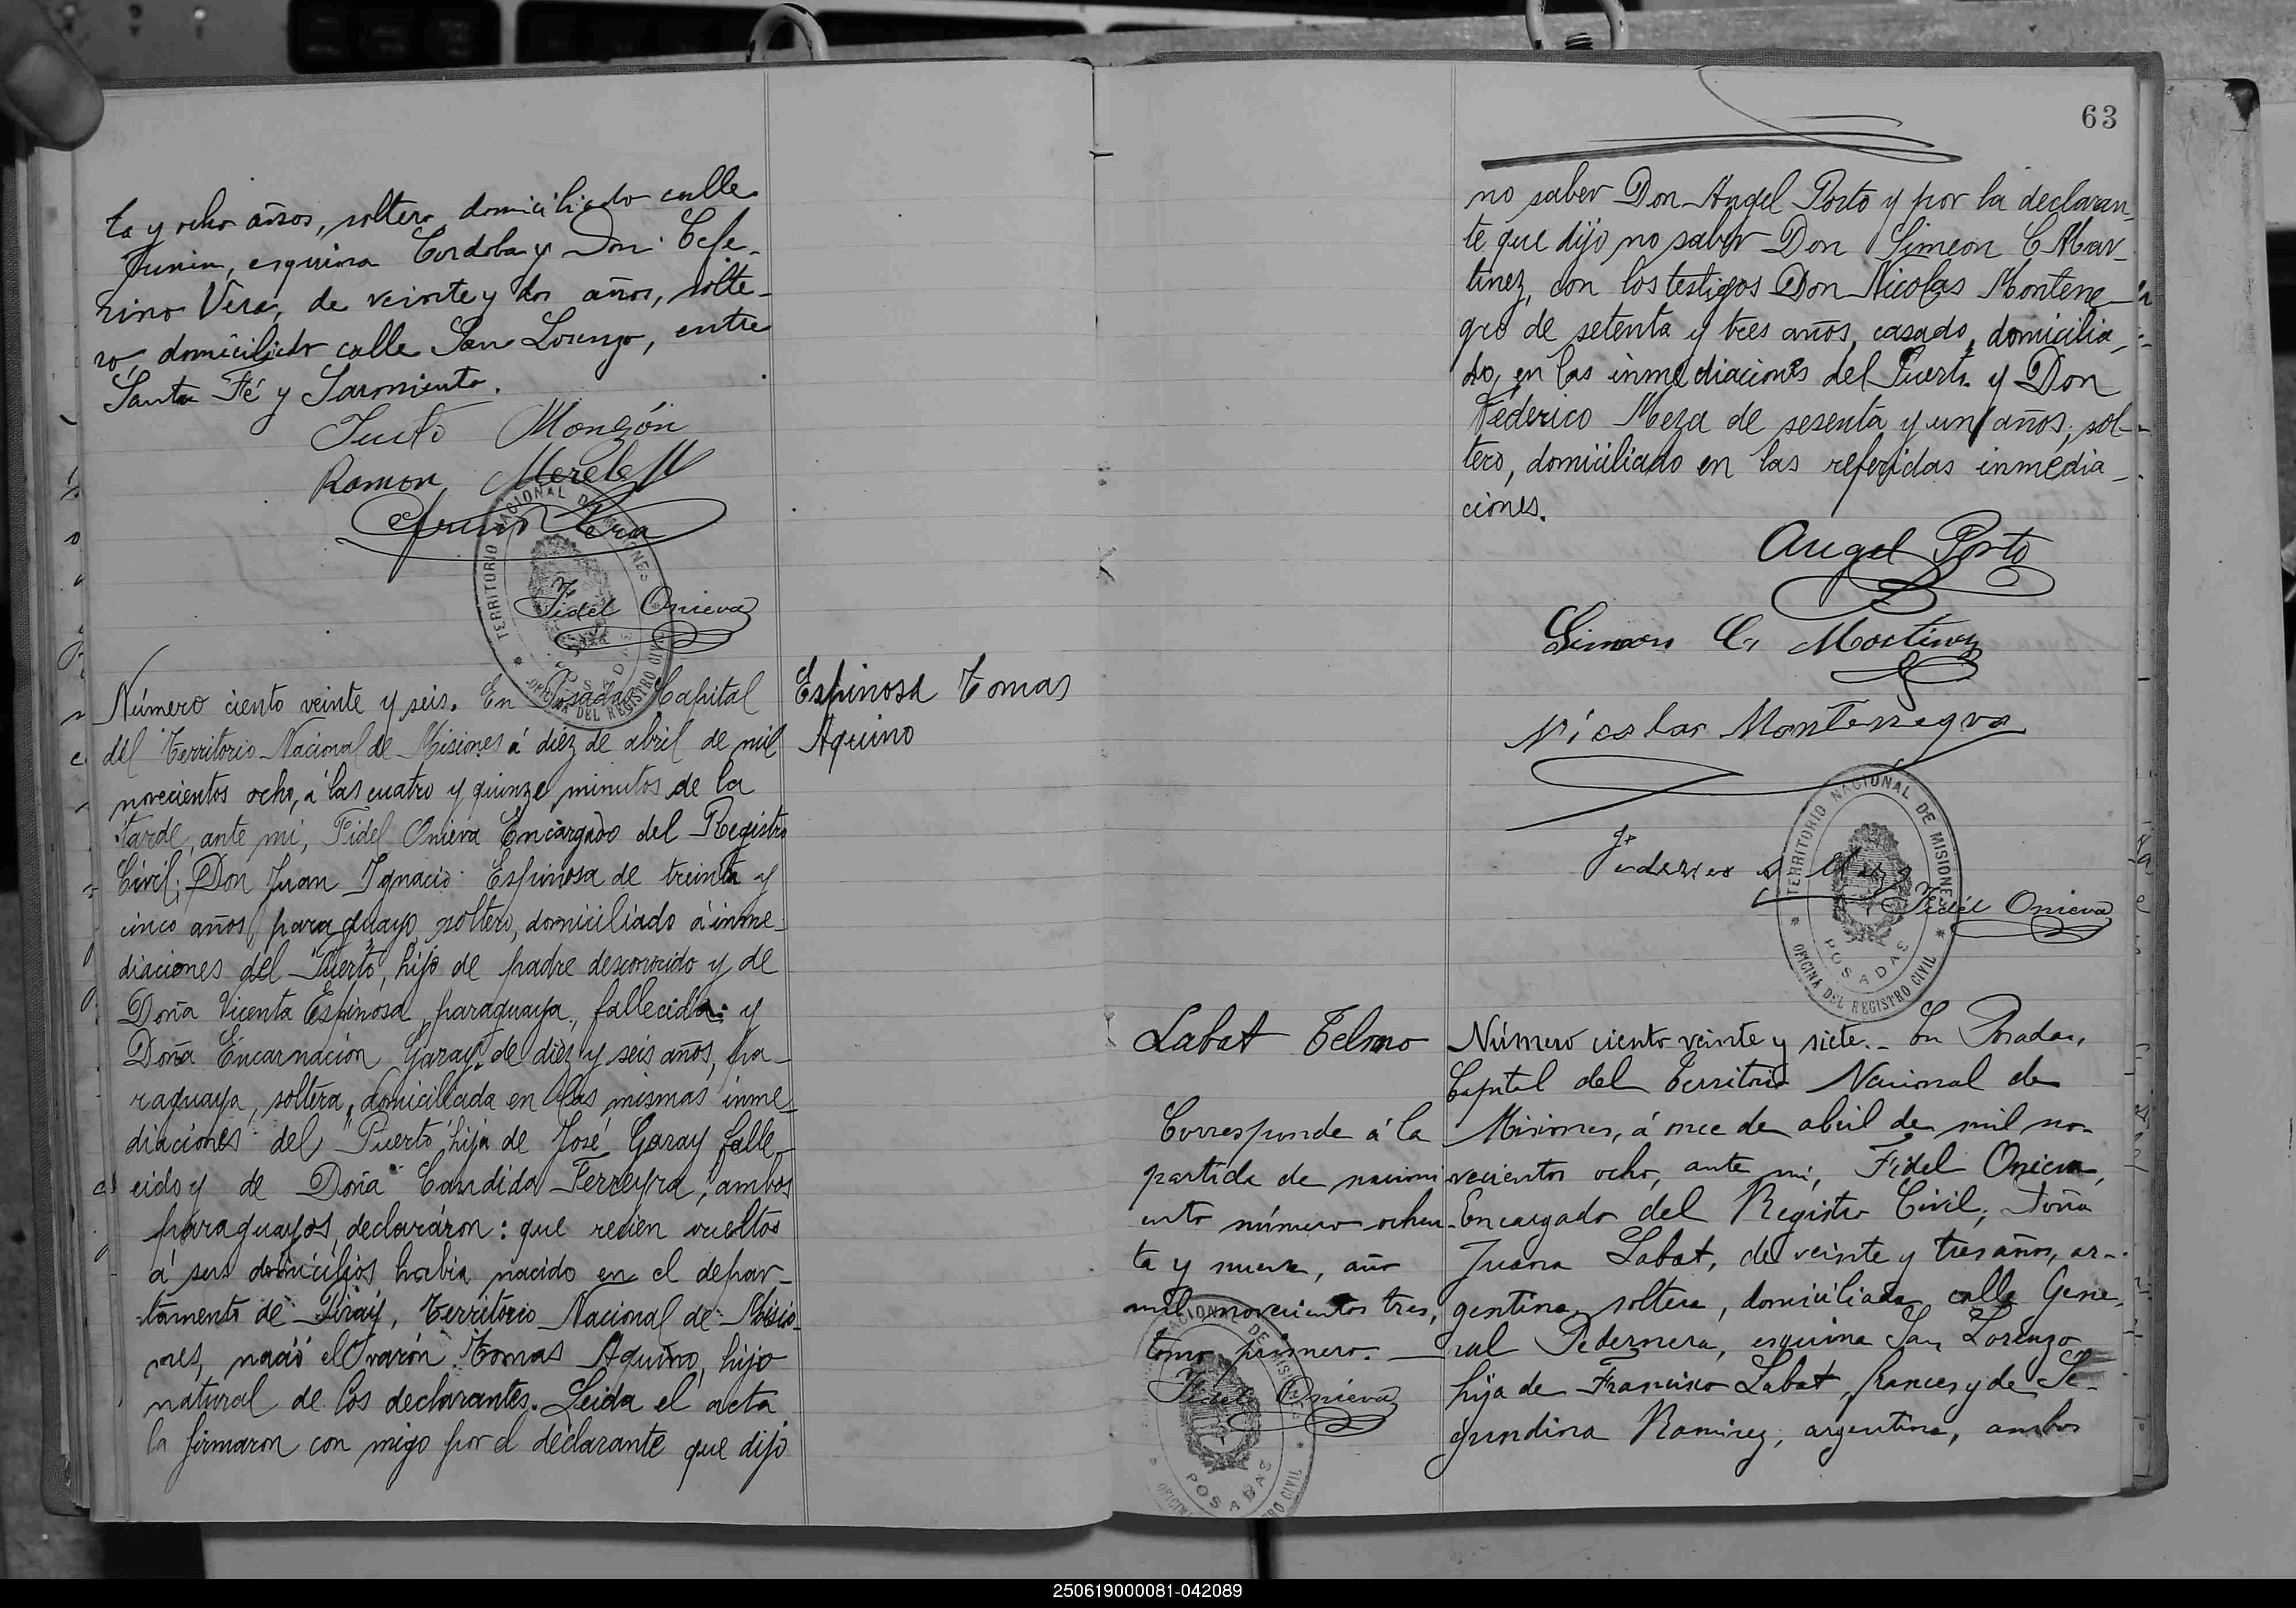 ta y ocho años, soltero domiciliado calle
Junin, esquina Cordoba y Don Cefe-
rino Vera, de veinte y dos años, solte-
ro, domiciliado calle San Lorenzo, entre
Santa Fé y Sarmiento.
Justo Monzón
Ramon
Vera
Fidel Onieva
TERRITORIO NACIONAL DE MISIONES
OFICINA DEL REGISTRO CIVIL
POSADAS
Número ciento veinte y seis. En Posadas Capital
del Territorio Nacional de Misiones á diez de abril de mil
novecientos ocho, á las cuatro y quinze minutos de la
tarde, ante mi, Fidel Onieva Encargado del Registro
Civil; Don Juan Ignacio Espinosa de treinta y
cinco años, paraguayo, soltero, domiciliado á inme-
diaciones del Puerto, hijo de padre desconocido y de
Doña Vicenta Espinosa, paraguaya, fallecida: y
Doña Encarnación Garay, de diez y seis años, pa-
raguaya, soltera, domiciliada en las mismas inme-
diaciones del Puerto hija de José Garay falle-
cido y de Doña Candida Ferreyra, ambos
paraguayos, declararon: que recien vueltos
á sus domicilios habia nacido en el depar-
tamento de Piray, Territorio Nacional de Misio-
nes, nació el varón Tomas Aquino, hijo
natural de los declarantes. Leida el acta
la firmaron con migo por el declarante que dijo
Espinosa Tomas
Aquino
63
no saber Don Angel Porto y por la declaran-
te que dijo no saber Don Simeon C Mar-
tinez, con los testigos Don Nicolas Montene-
gro de setenta y tres años, casado, domicilia-
do, en las inmediaciones del Puerto y Don
Federico Meza de sesenta y un años, sol-
tero, domiciliado en las referidas inmedia-
ciones.
Angel Porto
Simeon C. Martinez
Nicolas Montenegro
Federico Meza
Fidel Onieva
TERRITORIO NACIONAL DE MISIONES
OFICINA DEL REGISTRO CIVIL
POSADAS
Labat Telmo
Corresponde á la
partida de nacimi
ento número ochen-
ta y nueve, año
mil novecientos tres,
tomo primero.
Fidel Onieva
POSADAS
Número ciento veinte y siete.- En Posadas,
Capital del Territorio Nacional de
Misiones, á once de abril de mil no-
vecientos ocho, ante mi, Fidel Onieva,
Encargado del Registro Civil; Doña
Juana Labat, de veinte y tres años, ar-
gentina, soltera, domiciliada calle Gene-
ral Pedernera, esquina San Lorenzo
hija de Francisco Labat, frances y de Se-
gundina Ramirez, argentina, ambos
250619000081-042089